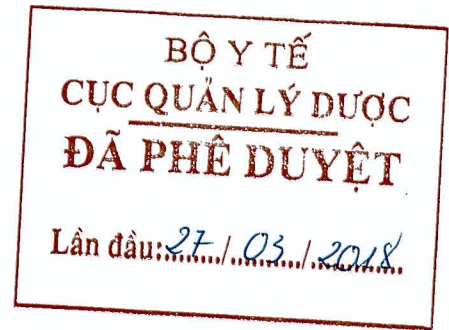 BỘ Y TẾ
CỤC QUẢN LÝ DƯỢC
ĐÃ PHÊ DUYỆT
Lần đầu:27/03/2018